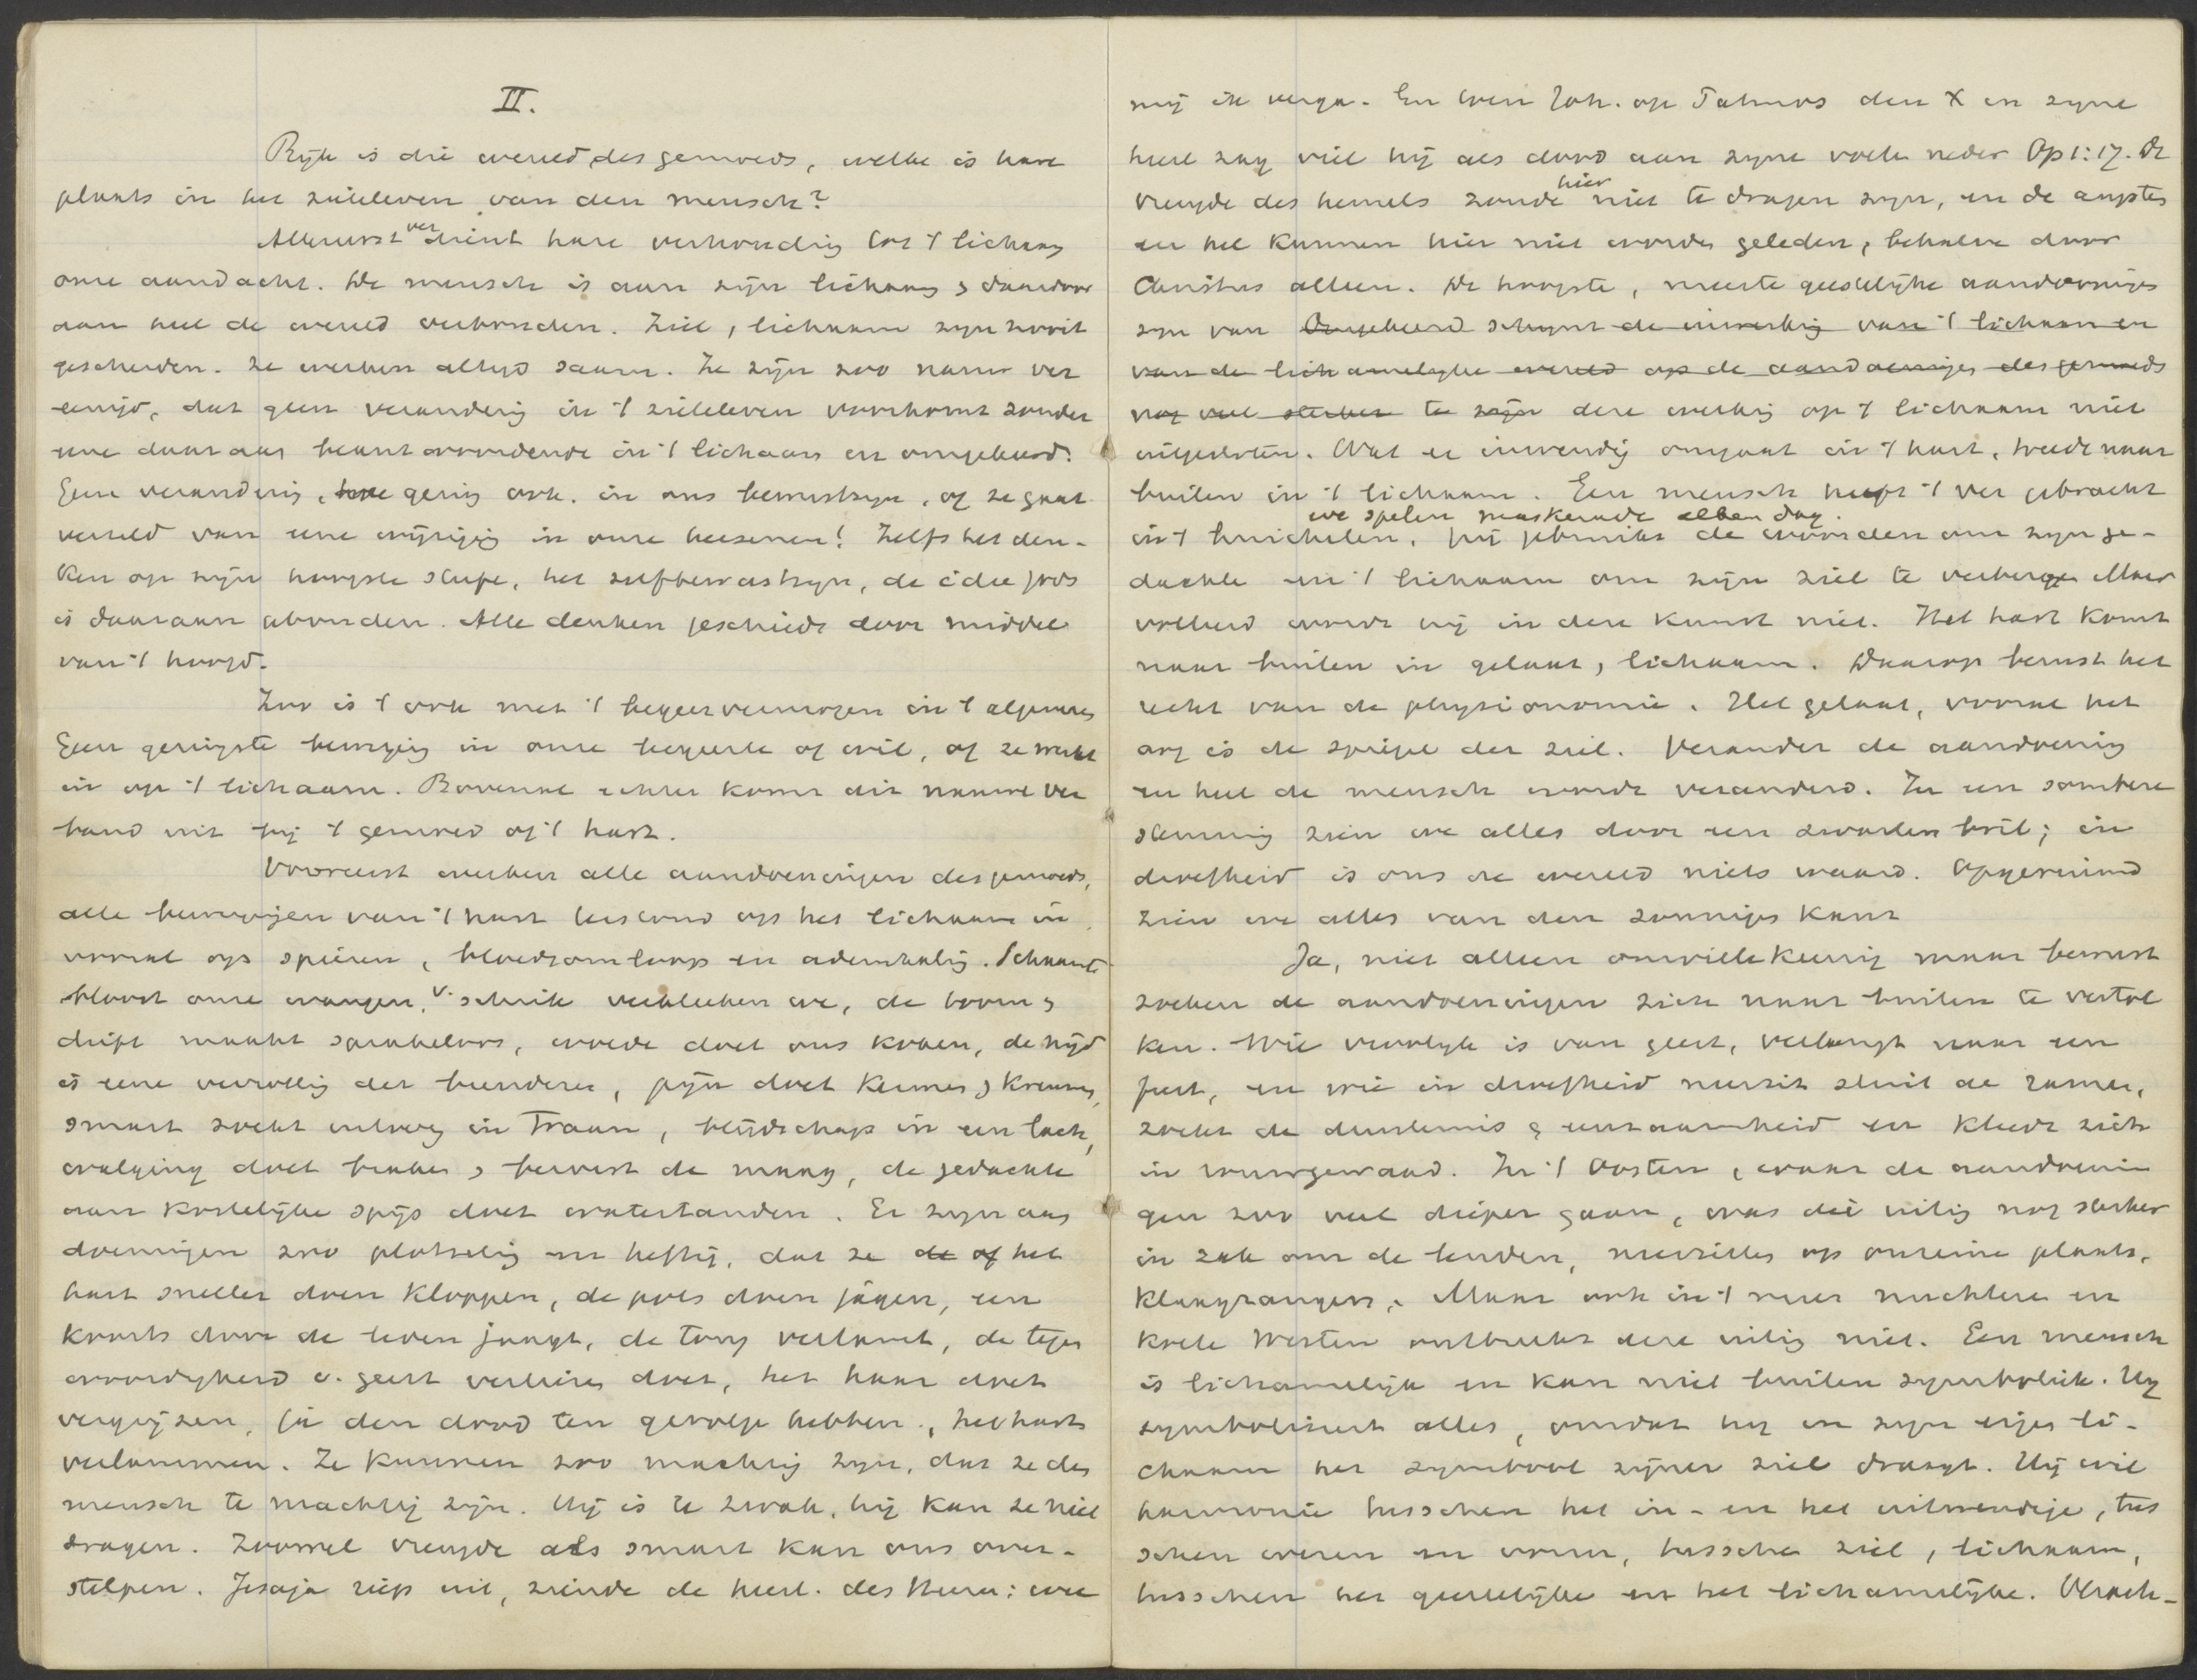 II.
Rijk is die wereld des gemoeds, welke is hare
plaats in het zieleleven van den mensch?
Allereerst verdient hare verhouding tot 't lichaam
onze aandacht. De mensch is aan zijn lichaam & daardoor
aan heel de wereld verbonden. Ziel, lichaam zijn nooit
gescheiden. ze werken altijd saam. Ze zijn zoo nauw ver
eenigd, dat geen verandering in 't zieleleven voorkomt zonder
eene daaraan beantwoordende in 't lichaam en omgekeerd.
Geen verandering, hoe gering ook. in ons bewustzijn, of ze gaat
verzeld van eene wijziging in onze hersenen! Zelfs het den-
ken op zijn hoogste scherpe, het zelfbewustzijn, de idee Gods
is daaraan gebonden. Alle denken geschiedt door middel
van 't hoofd.
Zoo is 't ook met 't begeervermogen in 't algemeen
Geen geringste beweging in onze begeerte of wil, of ze werkt
in op 't lichaam. Bovenal echter komt dit nauwe ver
band uit bij 't gemoed of 't hart.
Vooreerst werken alle aandoeningen des gemoeds,
alle bewegingen van 't hart terstond op het lichaam in
vooral op spieren, bloedsomloop en ademhaling. Schaamte
bloost onze wangen, v. schrik verbleeken we, de toorn &
drift maakt sprakeloos, woede doet ons koken, de nijd
is eene verrotting der beenderen, pijn doet kermen & kreunen,
smart zoekt uitweg in Traan, blijdschap in een lach,
walging doet braken & beweegt de maag, de gedachte
aan kostelijke spijs doet watertanden. Er zijn aan
doeningen zoo plotseling en heftig, dat ze de of het
hart sneller doen kloppen, de pols doen jagen, een
koorts door de leden jaagt, de tong verlamt, de tegen
woordigheid v. geest verliezen doet, het haar doet
vergrijzen, ja den dood ten gevolge hebben, het hart
verlammen. Ze kunnen zoo machtig zijn, dat ze den
mensch te machtig zijn. Hij is te zwak, hij kan ze niet
dragen. Zoowel vreugde als smart kan ons over-
stelpen. Jesaja riep uit, ziende de heerl. des Heeren: wee
mij ik verga. En toen Joh. op Patmos den X in zijne
heerl zag viel hij als dood aan zijne voeten neder Op 1:17. De
vreugde des hemels zoude hier niet te dragen zijn, en de angsten
der hel kunnen hier niet worden geleden, behalve door
Christus alleen. De hoogste, meeste geestelijke aandoeningen
zijn van Omgekeerd schijnt de inwerking van 't lichaam en
van de lichamelijke wereld op de aandoeningen des gemoeds
nog veel sterker te zijn deze werking op 't lichaam niet
uitgesloten. Wat er inwendig omgaat in 't hart, treedt naar
buiten in 't lichaam. Een mensch heeft 't ver gebracht
we spelen maskerade elken dag.
in 't huichelen, hij gebruikt de woorden om zijn ge-
dachte en 't lichaam om zijn ziel te verbergen Maar
volleerd wordt hij in deze kunst niet. Het hart komt
naar buiten in gelaat, lichaam. Daarop berust het
recht van de physionomie. Het gelaat, vooral het
oog is de spiegel der ziel. Verander de aandoening
en heel de mensch wordt veranderd. In een sombere
stemming zien we alles door een zwarten bril; in
droefheid is ons de wereld niets waard. Opgeruimd
zien we alles van den zonnigen kant
Ja, niet alleen onwillekeurig maar bewust
zoeken de aandoeningen zich naar buiten te vertol
ken. Wie vroolijk is van geest, verlangt naar een
feest, en wie in droefheid neerzit sluit de ramen,
zoekt de duisternis & eenzaamheid en kleedt zich
in rouwgewaad. In 't Oosten, waar de aandoenin
gen zoo veel dieper gaan, was die uiting nog sterker
in zak om de lenden, neerzitten op onreine plaats,
klaagzangers. Maar ook in 't meer nuchtere en
koele Westen ontbreekt deze uiting niet. Een mensch
is lichamelijk en kan niet buiten symboliek. Hij
symboliseert alles, omdat hij in zijn eigen li-
chaam het symbool zijner ziel draagt. Hij wil
harmonie tusschen het in- en het uitwendige, tus
schen wezen en vorm, tusschen ziel, lichaam,
tusschen het geestelijke en het lichamelijke.